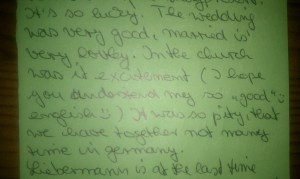 It's so lucky. The wedding
was very good, married is
very lovley. In the church
was it excitement (I hope
you understood my so "good"
english :) ) It was so pity, that
we have together not many
time in germany.
is at the last time